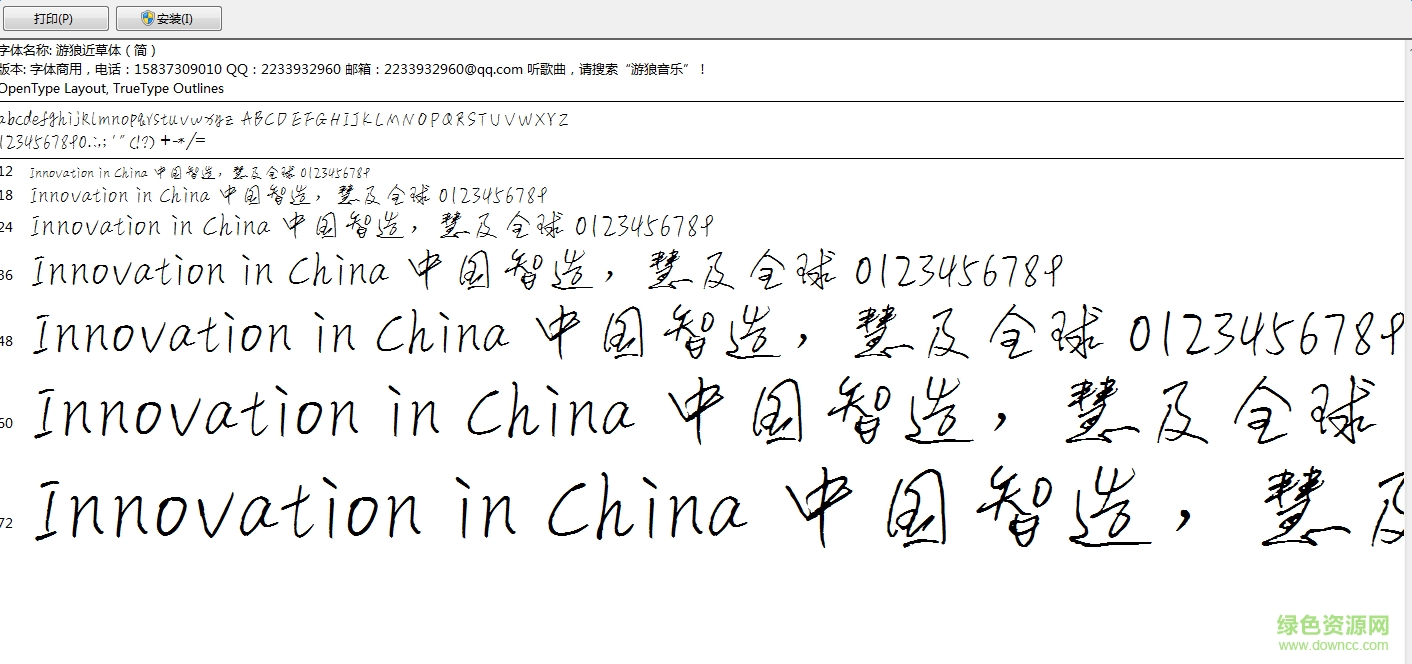 打印(P) 安装(I)
字体名称: 游狼近草体（简）
版本: 字体商用，电话：15837309010 QQ：2233932960 邮箱：2233932960@qq.com 听歌曲，请搜索“游狼音乐”！
OpenType Layout, TrueType Outlines
abcdefghijklmnopqrstuvwxyz ABCDEFGHIJKLMNOPQRSTUVWXYZ
1234567890.:,; ' " (!?) +-*/=
12 Innovation in China 中国智造，慧及全球 0123456789
18 Innovation in China 中国智造，慧及全球 0123456789
24 Innovation in China 中国智造，慧及全球 0123456789
36 Innovation in China 中国智造，慧及全球 0123456789
48 Innovation in China 中国智造，慧及全球 0123456789
60 Innovation in China 中国智造，慧及全球
72 Innovation in China 中国智造，慧及
绿色资源网
www.downcc.com